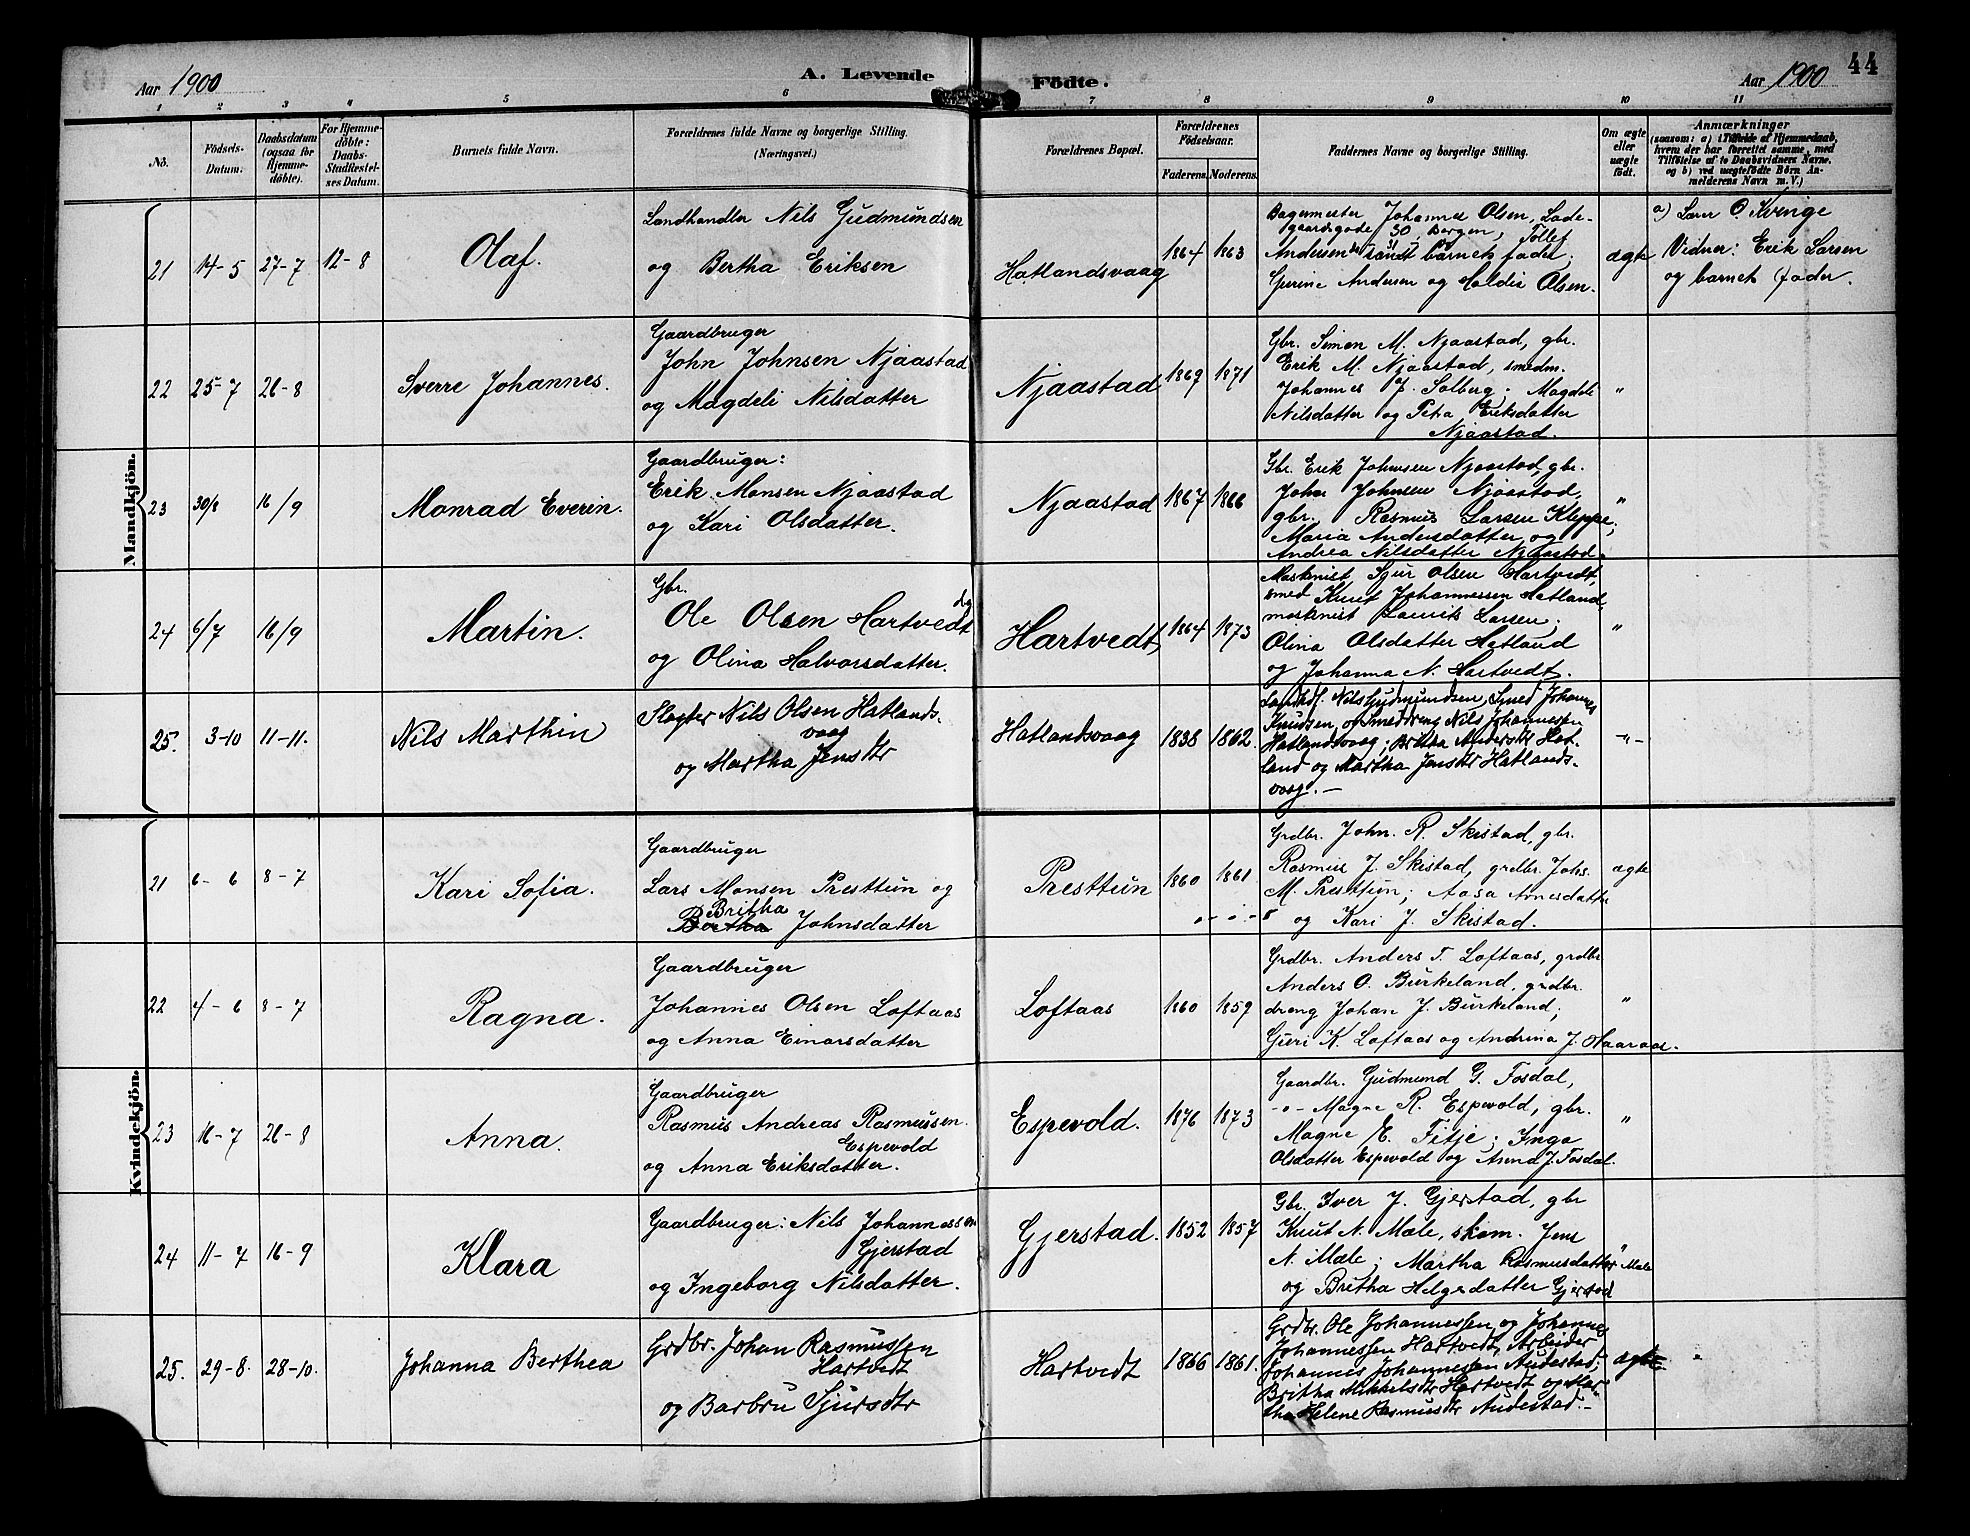 Aar 1900
A. Levende Födte.
Aar 1900
44
1 2 3 4 5 6 7 8 9 10 11
No.
Födsels-
Datum.
Daabsdatum
(ogsaa for
Hjemme-
döbte).
For Hjemme-
döbte:
Daabs-
Stadfæstel-
ses Datum.
Barnets fulde Navn.
Forældrenes fulde Navne og borgerlige Stilling.
(Næringsvei.)
Forældrenes Bopæl.
Forældrenes
Födselsaar.
Faderens. Moderens.
Faddernes Navne og borgerlige Stilling.
Om ægte
eller
uægte
födt.
Anmærkninger
(saasom: a) i Tilfælde af Hjemmedaab,
hvem der har forrettet samme, med
Tilföielse af to Daabsvidners Navne.
og b) ved uægtefödte Börn An-
melderens Navn m. V.)
Mandkjön.
21 14-5 27-7 12-8 Olaf.
Landhandler Nils Gudmundsen
og Bertha Eriksen
Hatlandsvaag 1864 1863
Bagermester Johannes Olsen, Lade-
gaardsgade 30, Bergen, Tollef
Andersen samt barnets fader;
Gurine Andersen og Haldis Olsen.
ægte
a) Lærer O. Kvinge
Vidner: Erik Larsen
og barnets fader.
22 25-7 26-8 Sverre Johannes.
Gaardbruger
John Johnsen Njaastad
og Magdeli Nilsdatter
Njaastad 1869 1871
Gbr. Simon M. Njaastad, gbr.
Erik M. Njaastad, smedm.
Johannes J. Solberg; Magdeli
Nilsdatter og Petra Eriksdatter
Njaastad.
"
23 30/8 16/9 Monrad Everin.
Gaardbruger:
Erik Monsen Njaastad
og Kari Olsdatter.
Njaastad 1867 1866
Gbr. Erik Johnsen Njaastad, gbr.
John Johnsen Njaastad,
gbr. Rasmus Larsen Kleppe;
Maria Andersdatter og
Andrea Nilsdatter Njaastad.
"
24 6/7 16/9 Martin.
Gbr.
Ole Olsen Hartvedt
og Olina Halvorsdatter.
Hartvedt 1864 1873
Maskinist Sjur Olsen Hartvedt,
smed Knut Johannessen Hatland,
maskinist Laurits Larsen;
Olina Olsdatter Hetland
og Johanna N. Hartvedt.
"
25. 3-10 11-11. Nils Marthin
Slagter Nils Olsen Hatlands-
vaag
og Martha Jensdtr
Hatlandsvaag 1838 1862.
Landhdl. Nils Gudmundsen, Smed Johannes
Knudsen, og Smeddreng Nils Johannessen
Hatlandsvaag; Britha Andersdtr Hat-
land og Martha Jensdtr Hatlands-
vaag. —
-"-
Kvindekjön.
21 6-6 8-7 Kari Sofia.
Gaardbruger
Lars Monsen Presttun og
Britha
Bertha Johnsdatter
Presttun 1860 1861
Grdbr. John. R. Skistad, gbr.
Rasmus J. Skistad, grdbr. Johs.
M. Presttun; Aasa Arnesdatter
og Kari J. Skistad.
ægte
22 4-6 8-7 Ragna.
Gaardbruger
Johannes Olsen Loftaas
og Anna Einarsdatter
Loftaas 1860 1859
Grdbr. Anders T. Loftaas, grdbr
Anders O. Burkeland, grdbr.
dreng Johan J. Burkeland;
Guri K. Loftaas og Andrina J. Haaraas.
"
23 16-7 26-8 Anna.
Gaardbruger
Rasmus Andreas Rasmussen
Espevold
og Anna Eriksdatter.
Espevold. 1876 1873
Gaardbr. Gudmund G. Fosdal,
-o- Magne R. Espevold, gbr.
Magne E. Fitje; Inga
Olsdatter Espevold og Anna J. Fosdal.
"
24 11-7 16-9 Klara
Gaardbruger: Nils Johannessen
Gjerstad
og Ingeborg Nilsdatter.
Gjerstad. 1852 1857
Gbr. Iver J. Gjerstad, gbr
Knut N. Mæle, skom. Jens
N. Mæle; Martha Rasmusdatter Mæle
og Britha Helgesdatter Gjerstad
"
25. 29-8. 28-10. Johanna Berthea
Grdbr. Johan Rasmussen
Hartvedt
og Barbru Sjursdtr
Hartvedt 1866 1861.
Grdbr. Ole Johannessen og Johannes
Johannessen Hartvedt, Arbeider
Johannes Johannessen Audestad;
Britha Mikkelsdtr Hartvedt og Mar-
tha Helene Rasmusdtr Audestad. –
ægte